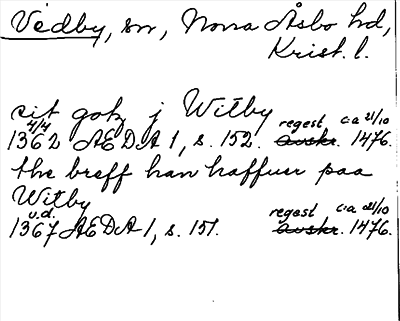 Vedby, sn, Norra Åsbo hd,
Krist. l.
sit gotz j Witby
4/4 regest ca 21/10
1362 AEDA 1, s. 152. avskr. 1476.
the breff han haffuer paa
Witby
u.d. regest ca 21/10
1367 AEDA 1, s. 151. avskr. 1476.